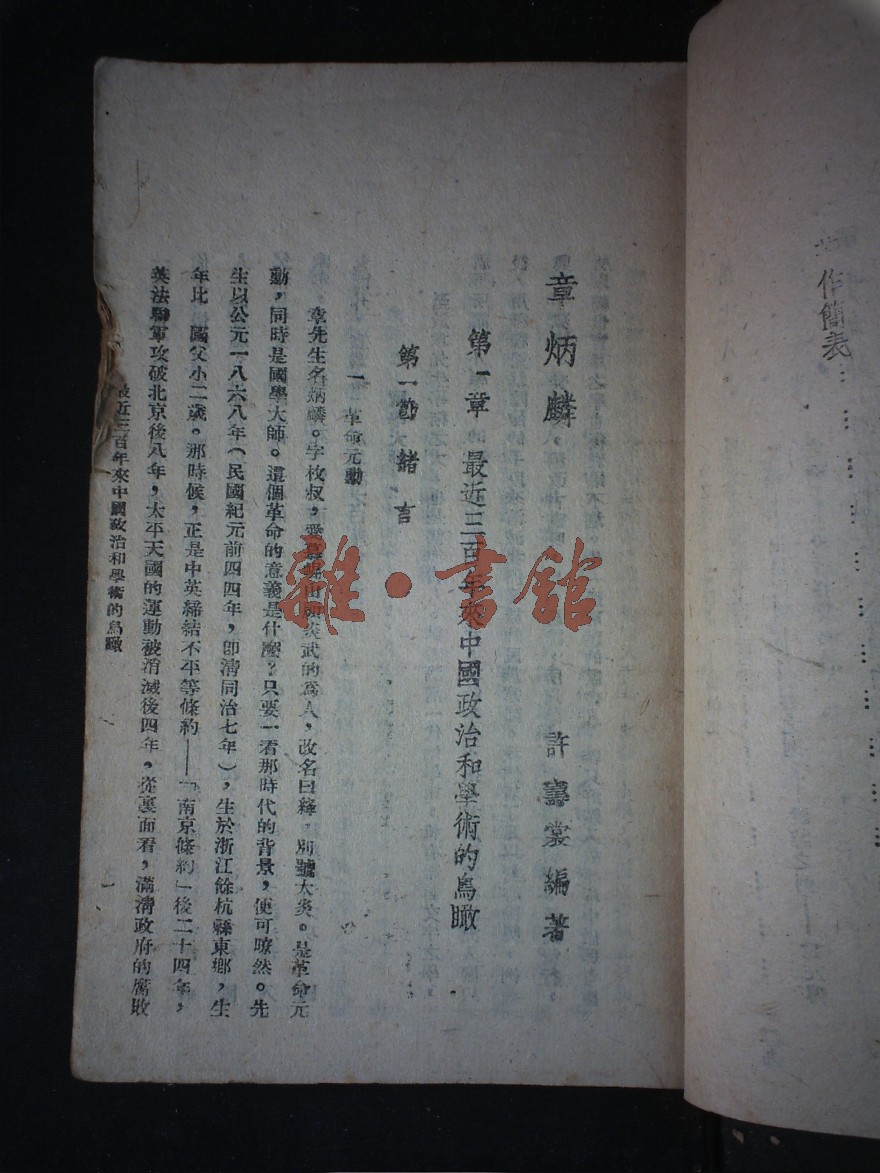 作簡表……………
章炳麟
許壽裳編著
第一章 最近三百年來中國政治和學術的鳥瞰
第一節 緒言
一 革命元勳
章先生名炳麟。字枚叔,愛慕崑山顧炎武的爲人,改名曰絳,別號太炎。是革命元
勳,同時是國學大師。這個革命的意義是什麼?只要一看那時代的背景,便可暸然。先
生以公元一八六八年(民國紀元前四四年,卽淸同治七年),生於浙江餘杭縣東鄉,生
年比 國父小二歲。那時候,正是中英締結不平等條約——「南京條約」後二十四年,
英法聯軍攻破北京後八年,太平天國的運動被消滅後四年,從裏面看,滿淸政府的腐敗
最近三百年來中國政治和學術的鳥瞰
一
雜·書館